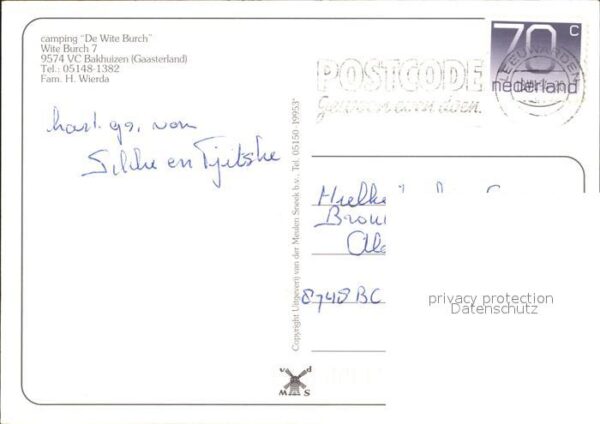 camping "De Wite Burch"
Wite Burch 7
9574 VC Bakhuizen (Gaasterland)
Tel.: 05148-1382
Fam. H. Wierda
70 c
nederland
LEEUWARDEN
POSTCODE
Gewoon even doen.
hart. gr. van
en Tjitske
Copyright Uitgeverij van der Meulen Sneek b.v. Tel. 05150-19953*
8748 BC
privacy protection
Datenschutz
v d
M S